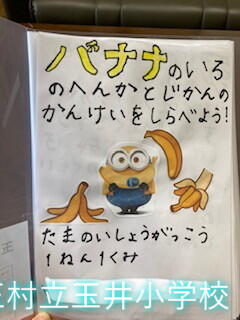 バナナのいろ
のへんかとじかんの
かんけいをしらべよう!
たまのいしょうがっこう
1ねん1くみ
村立玉井小学校